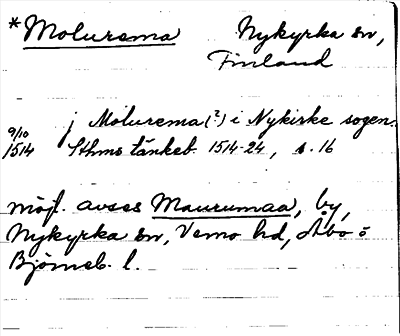 *Molurema Nykyrka sn,
Finland
9/10 1514 j Molurema (?) i Nykirke sogen..
Sthms tänkeb. 1514-24, s. 16
möjl. avses Maurumaa, by,
Nykyrka sn, Vemo hd, Åbo o
Björneb. l.